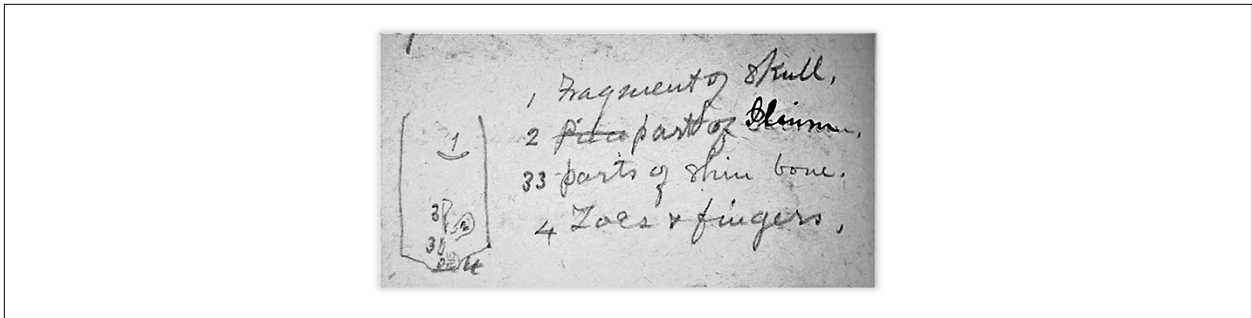 1 Fragment of skull,
2 part of Ilium,
33 parts of shin bone.
4 Toes & fingers,
1
3
2
3
4